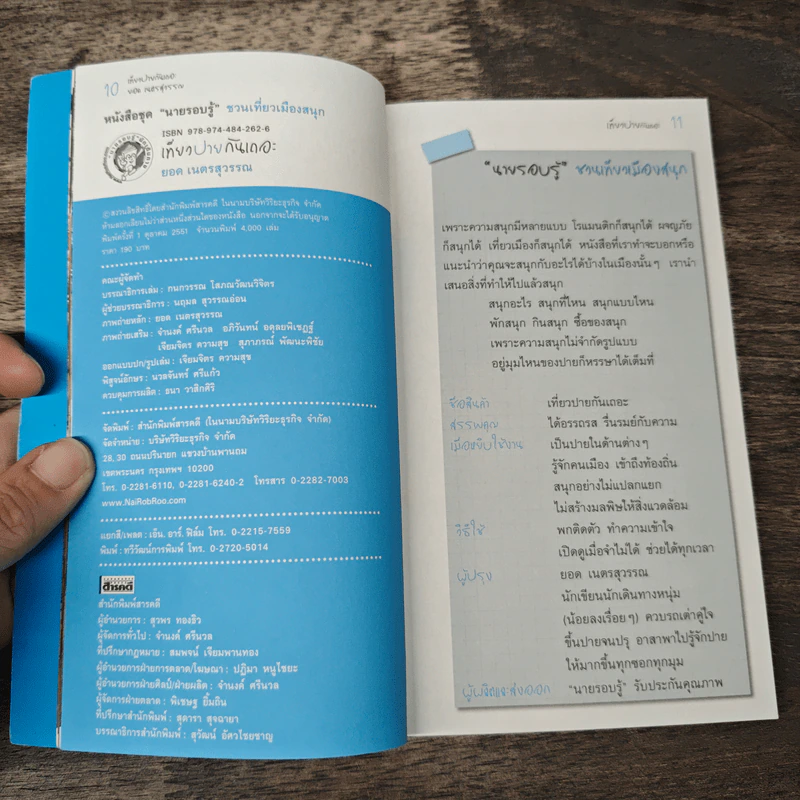 10
เที่ยวปายกันเถอะ
ยอด เนตรสุวรรณ
หนังสือชุด "นายรอบรู้" ชวนเที่ยวเมืองสนุก
ISBN 978-974-484-262-6
เที่ยวปายกันเถอะ
ยอด เนตรสุวรรณ
©สงวนลิขสิทธิ์โดยสำนักพิมพ์สารคดี ในนามบริษัทวิริยะธุรกิจ จำกัด
ห้ามลอกเลียนไม่ว่าส่วนหนึ่งส่วนใดของหนังสือ นอกจากจะได้รับอนุญาต
พิมพ์ครั้งที่ 1 ตุลาคม 2551 จำนวนพิมพ์ 4,000 เล่ม
ราคา 190 บาท
คณะผู้จัดทำ
บรรณาธิการเล่ม : กนกวรรณ โสภณวัฒนวิจิตร
ผู้ช่วยบรรณาธิการ : นฤมล สุวรรณอ่อน
ภาพถ่ายหลัก : ยอด เนตรสุวรรณ
ภาพถ่ายเสริม : จำนงค์ ศรีนวล อภิวันทน์ อดุลยพิเชฏฐ์
เจียมจิตร ความสุข สุภาภรณ์ พัฒนะพิชัย
ออกแบบปก/รูปเล่ม : เจียมจิตร ความสุข
พิสูจน์อักษร : นวลจันทร์ ศรีแก้ว
ควบคุมการผลิต : ธนา วาสิกศิริ
จัดพิมพ์ : สำนักพิมพ์สารคดี (ในนามบริษัทวิริยะธุรกิจ จำกัด)
จัดจำหน่าย : บริษัทวิริยะธุรกิจ จำกัด
28, 30 ถนนปรินายก แขวงบ้านพานถม
เขตพระนคร กรุงเทพฯ 10200
โทร. 0-2281-6110, 0-2281-6240-2 โทรสาร 0-2282-7003
www.NaiRobRoo.com
แยกสี/เพลต : เอ็น. อาร์. ฟิล์ม โทร. 0-2215-7559
พิมพ์ : ทวีวัฒน์การพิมพ์ โทร. 0-2720-5014
สารคดี
สำนักพิมพ์สารคดี
ผู้อำนวยการ : สุวพร ทองธิว
ผู้จัดการทั่วไป : จำนงค์ ศรีนวล
ที่ปรึกษากฎหมาย : สมพจน์ เจียมพานทอง
ผู้อำนวยการฝ่ายการตลาด/โฆษณา : ปฏิมา หนูไชยะ
ผู้อำนวยการฝ่ายศิลป์/ฝ่ายผลิต : จำนงค์ ศรีนวล
ผู้จัดการฝ่ายตลาด : พิเชษฐ ยิ้มถิน
ที่ปรึกษาสำนักพิมพ์ : สุดารา สุจฉายา
บรรณาธิการสำนักพิมพ์ : สุวัฒน์ อัศวไชยชาญ
เที่ยวปายกันเถอะ 11
"นายรอบรู้" ชวนเที่ยวเมืองสนุก
เพราะความสนุกมีหลายแบบ โรแมนติกก็สนุกได้ ผจญภัย
ก็สนุกได้ เที่ยวเมืองก็สนุกได้ หนังสือที่เราทำจะบอกหรือ
แนะนำว่าคุณจะสนุกกับอะไรได้บ้างในเมืองนั้นๆ เรานำ
เสนอสิ่งที่ทำให้ไปแล้วสนุก
สนุกอะไร สนุกที่ไหน สนุกแบบไหน
พักสนุก กินสนุก ซื้อของสนุก
เพราะความสนุกไม่จำกัดรูปแบบ
อยู่มุมไหนของปายก็หรรษาได้เต็มที่
ชื่อสินค้า เที่ยวปายกันเถอะ
สรรพคุณ ได้อรรถรส รื่นรมย์กับความ
เมื่อหยิบใช้งาน เป็นปายในด้านต่างๆ
รู้จักคนเมือง เข้าถึงท้องถิ่น
สนุกอย่างไม่แปลกแยก
ไม่สร้างมลพิษให้สิ่งแวดล้อม
วิธีใช้ พกติดตัว ทำความเข้าใจ
เปิดดูเมื่อจำไม่ได้ ช่วยได้ทุกเวลา
ผู้ปรุง ยอด เนตรสุวรรณ
นักเขียนนักเดินทางหนุ่ม
(น้อยลงเรื่อยๆ) ควบรถเต่าคู่ใจ
ขึ้นปายจนปรุ อาสาพาไปรู้จักปาย
ให้มากขึ้นทุกซอกทุกมุม
ผู้ผลิตและส่งออก "นายรอบรู้" รับประกันคุณภาพ